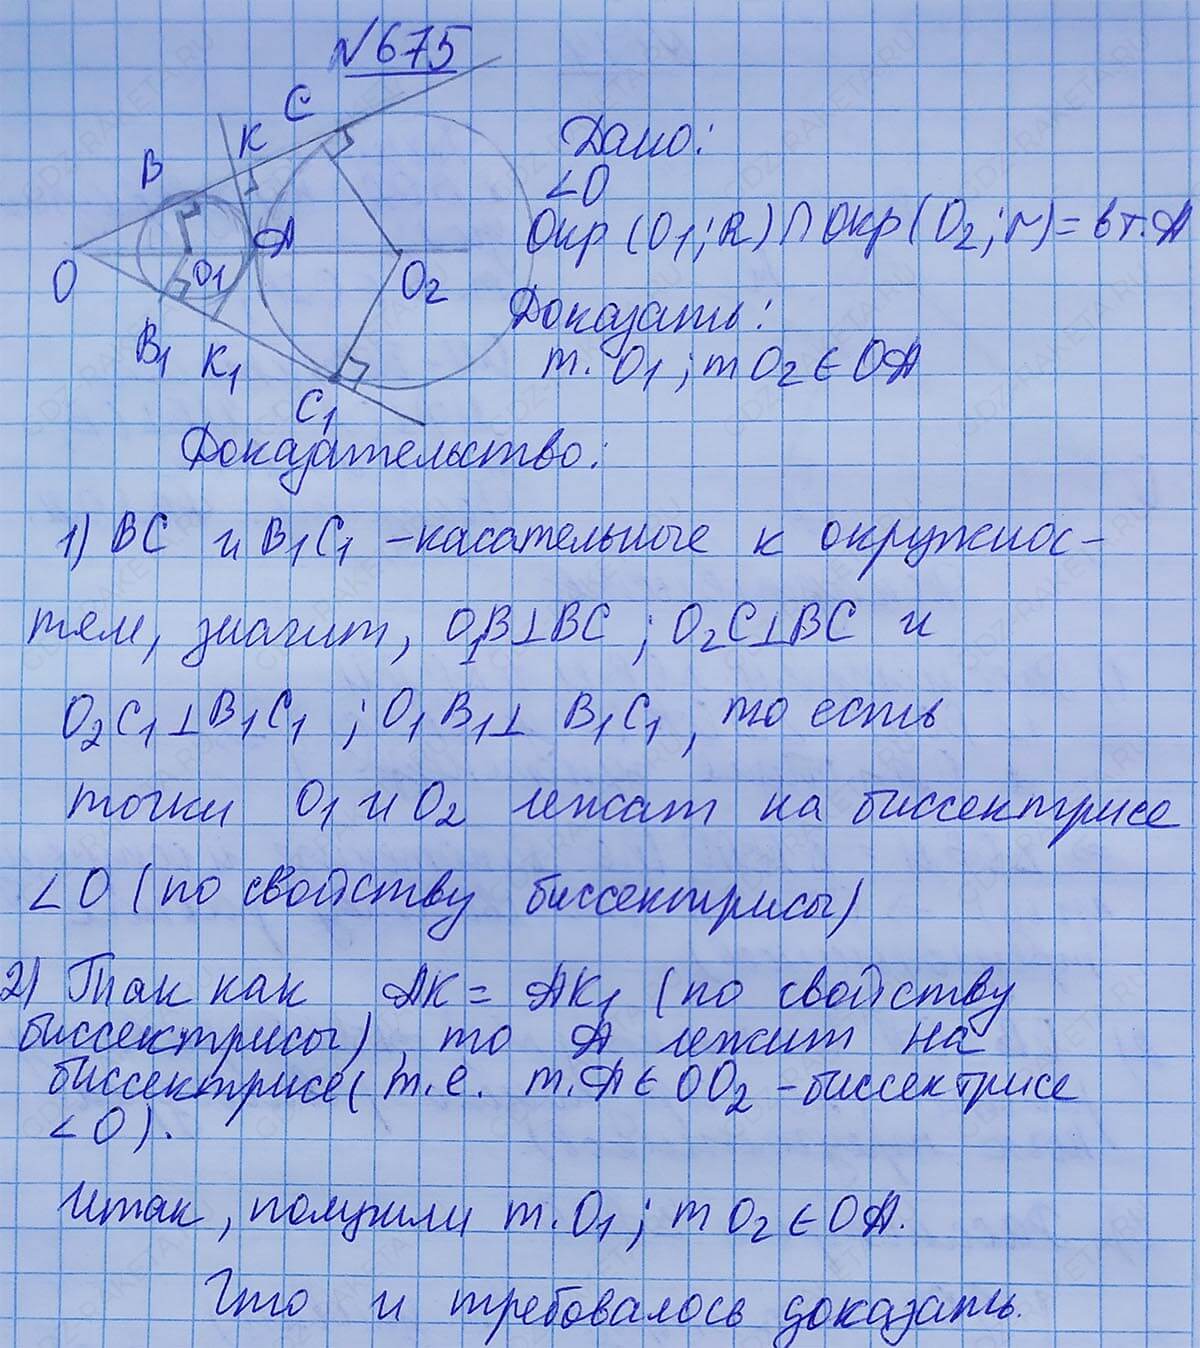 №675
C
K
B
A
O
O1
O2
B1
K1
C1
Дано:
∠O
Окр (O1; R) ∩ Окр (O2; r) = в т. A
Доказать:
т. O1; т O2 ∈ OA
Доказательство:
1) BC и B1C1 - касательные к окружнос-
тям, значит, O1B⊥BC; O2C⊥BC и
O2C1⊥B1C1; O1B1⊥B1C1, то есть
точки O1 и O2 лежат на биссектрисе
∠O (по свойству биссектрисы)
2) Так как AK = AK1 (по свойству
биссектрисы), то A лежит на
биссектрисе (т.е. т. A ∈ OO2 - биссектрисе
∠O).
Итак, получили т. O1; т O2 ∈ OA.
Что и требовалось доказать.